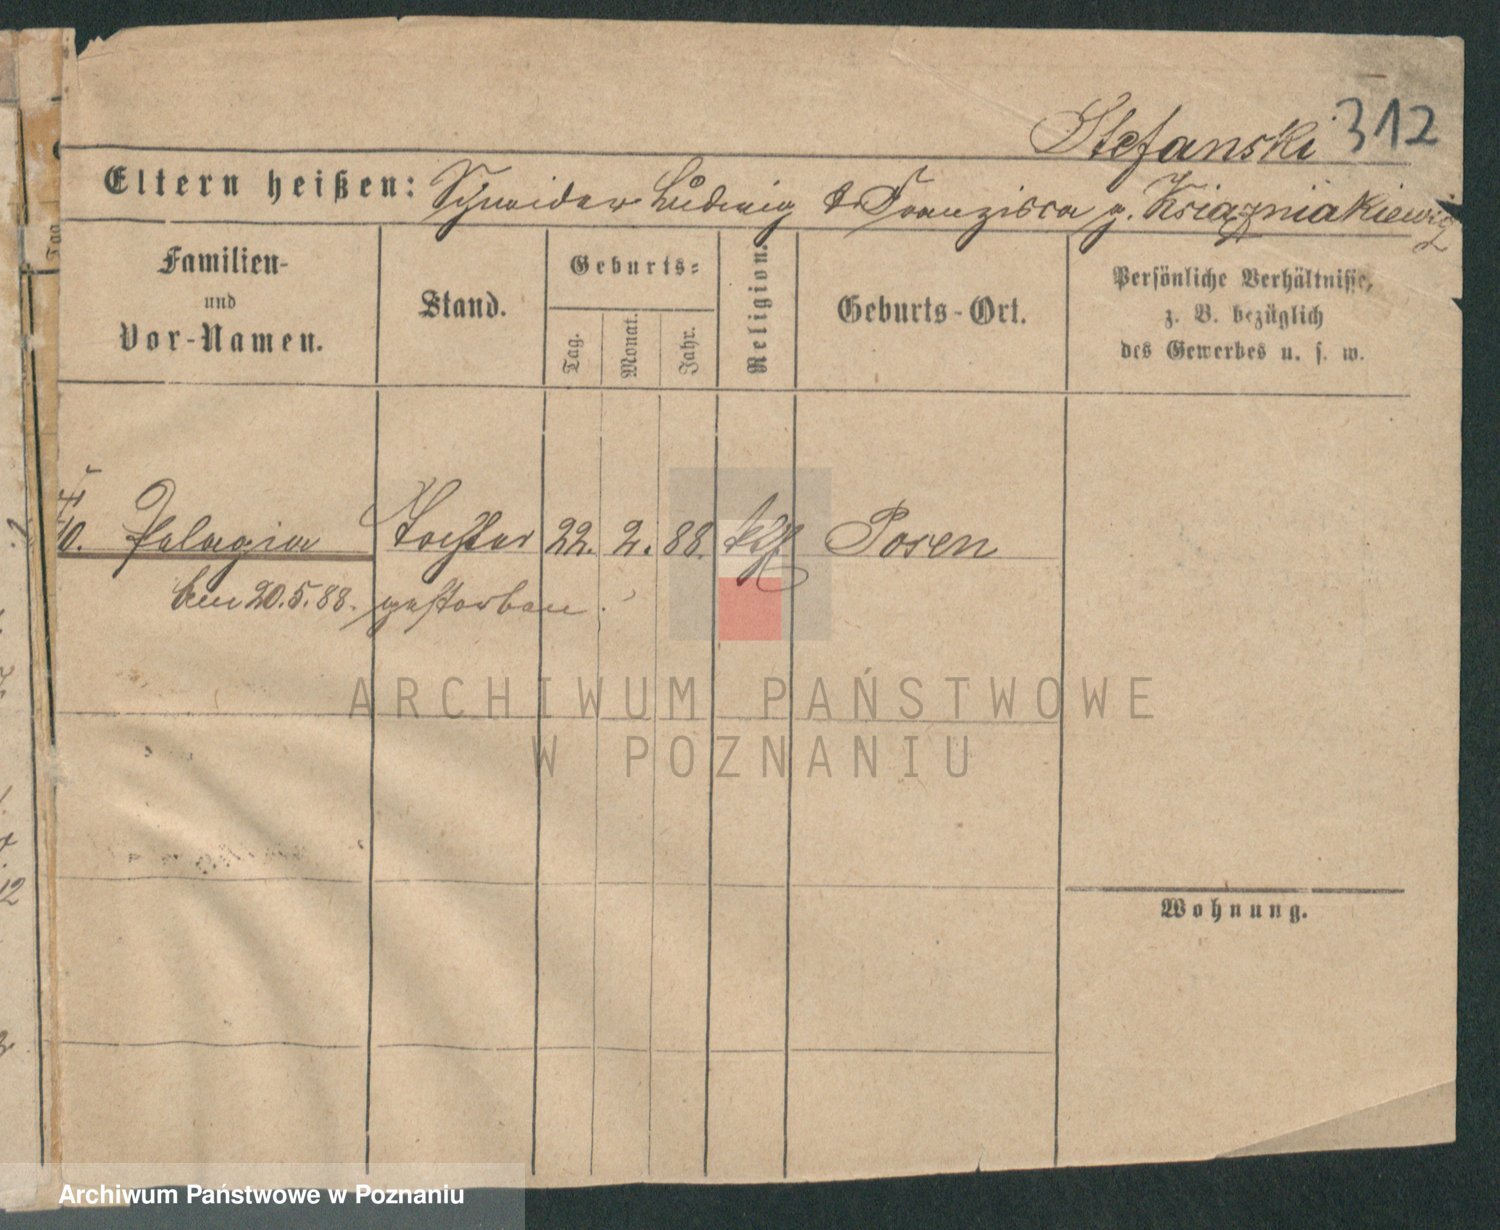 Stefanski 312
Eltern heißen: Schneider Ludwig & Franzisca g. Książniakiewicz
Familien-
und
Vor-Namen.
Stand.
Geburts-
Tag.
Monat.
Jahr.
Religion.
Geburts-Ort.
Persönliche Verhältnisse,
z. B. bezüglich
des Gewerbes u. s. w.
Pelagia Tochter 22. 2. 88. kth Posen
den 20.5.88. gestorben.
Wohnung.
ARCHIWUM PAŃSTWOWE
W POZNANIU
Archiwum Państwowe w Poznaniu